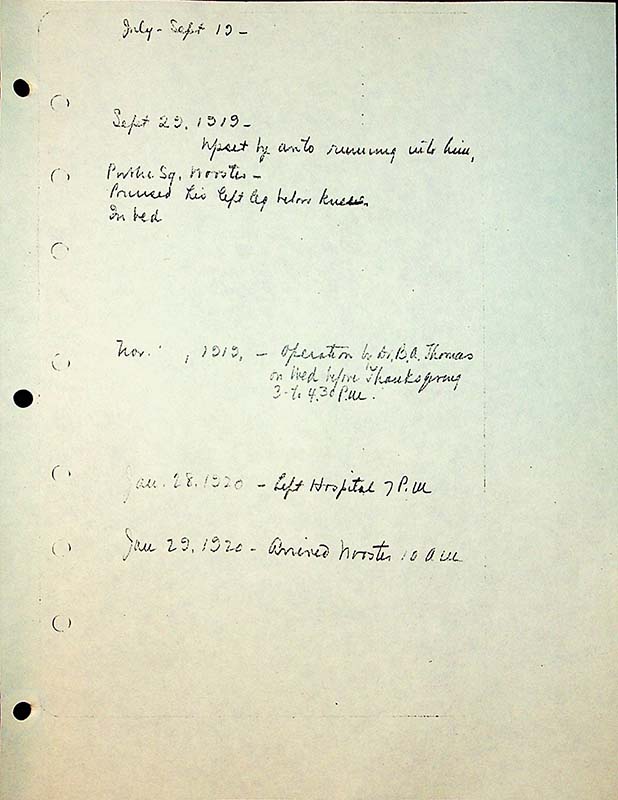 July - Sept 19 -
Sept 29, 1919 -
Upset by auto running into him,
Public Sq. Wooster -
Bruised his left leg below knee.
In bed
Nov. , 1919, - Operation by Dr. B.A. Thomas
on Wed before Thanksgiving
3 - to 4.30 P.M.
Jan. 28, 1920 - Left Hospital 7 P.M
Jan 29, 1920 - Arrived Wooster 10 A.M